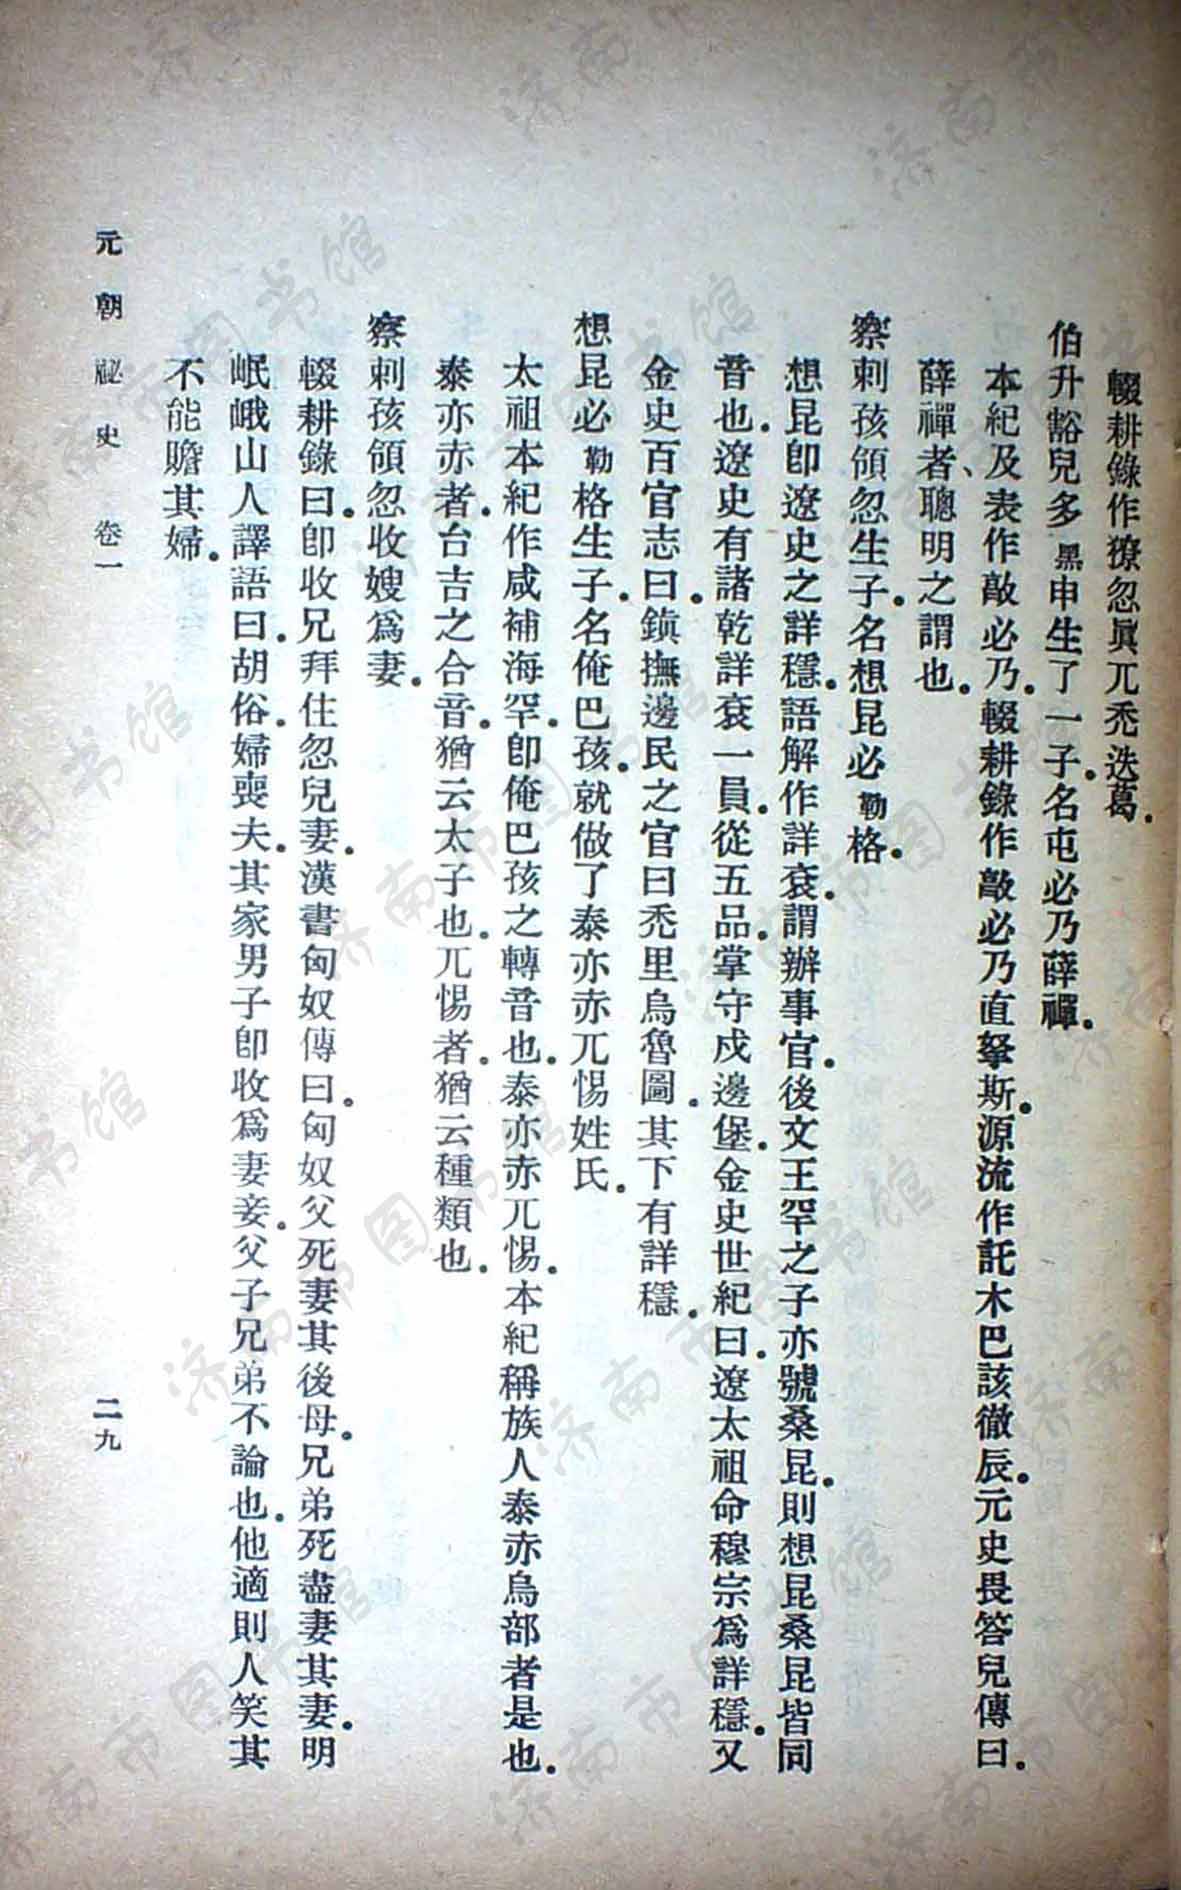 輟耕錄作獠忽眞兀禿迭葛。
伯升豁兒多黑申生了一子。名屯必乃薛禪。
本紀及表作敵必乃。輟耕錄作敵必乃直拏斯。源流作託木巴該徹辰。元史畏答兒傳曰。
薛禪者、聰明之謂也。
察剌孩領忽生子。名想昆必勒格。
想昆卽遼史之詳穩。語解作詳衮。謂辦事官。後文王罕之子亦號桑昆。則想昆桑昆皆同
音也。遼史有諸乾詳衮一員。從五品。掌守戍邊堡。金史世紀曰。遼太祖命穆宗爲詳穩。又
金史百官志曰。鎭撫邊民之官曰禿里烏魯圖。其下有詳穩。
想昆必勒格生子。名俺巴孩。就做了泰亦赤兀惕姓氏。
太祖本紀作咸補海罕。卽俺巴孩之轉音也。泰亦赤兀惕。本紀稱族人泰赤烏部者是也。
泰亦赤者。台吉之合音。猶云太子也。兀惕者。猶云種類也。
察剌孩領忽收嫂爲妻。
輟耕錄曰。卽收兄拜住忽兒妻。漢書匈奴傳曰。匈奴父死妻其後母。兄弟死盡妻其妻。明
岷峨山人譯語曰。胡俗。婦喪夫。其家男子卽收爲妻妾。父子兄弟不論也。他適則人笑其
不能贍其婦。
元朝祕史 卷一 二九
济南市图书馆